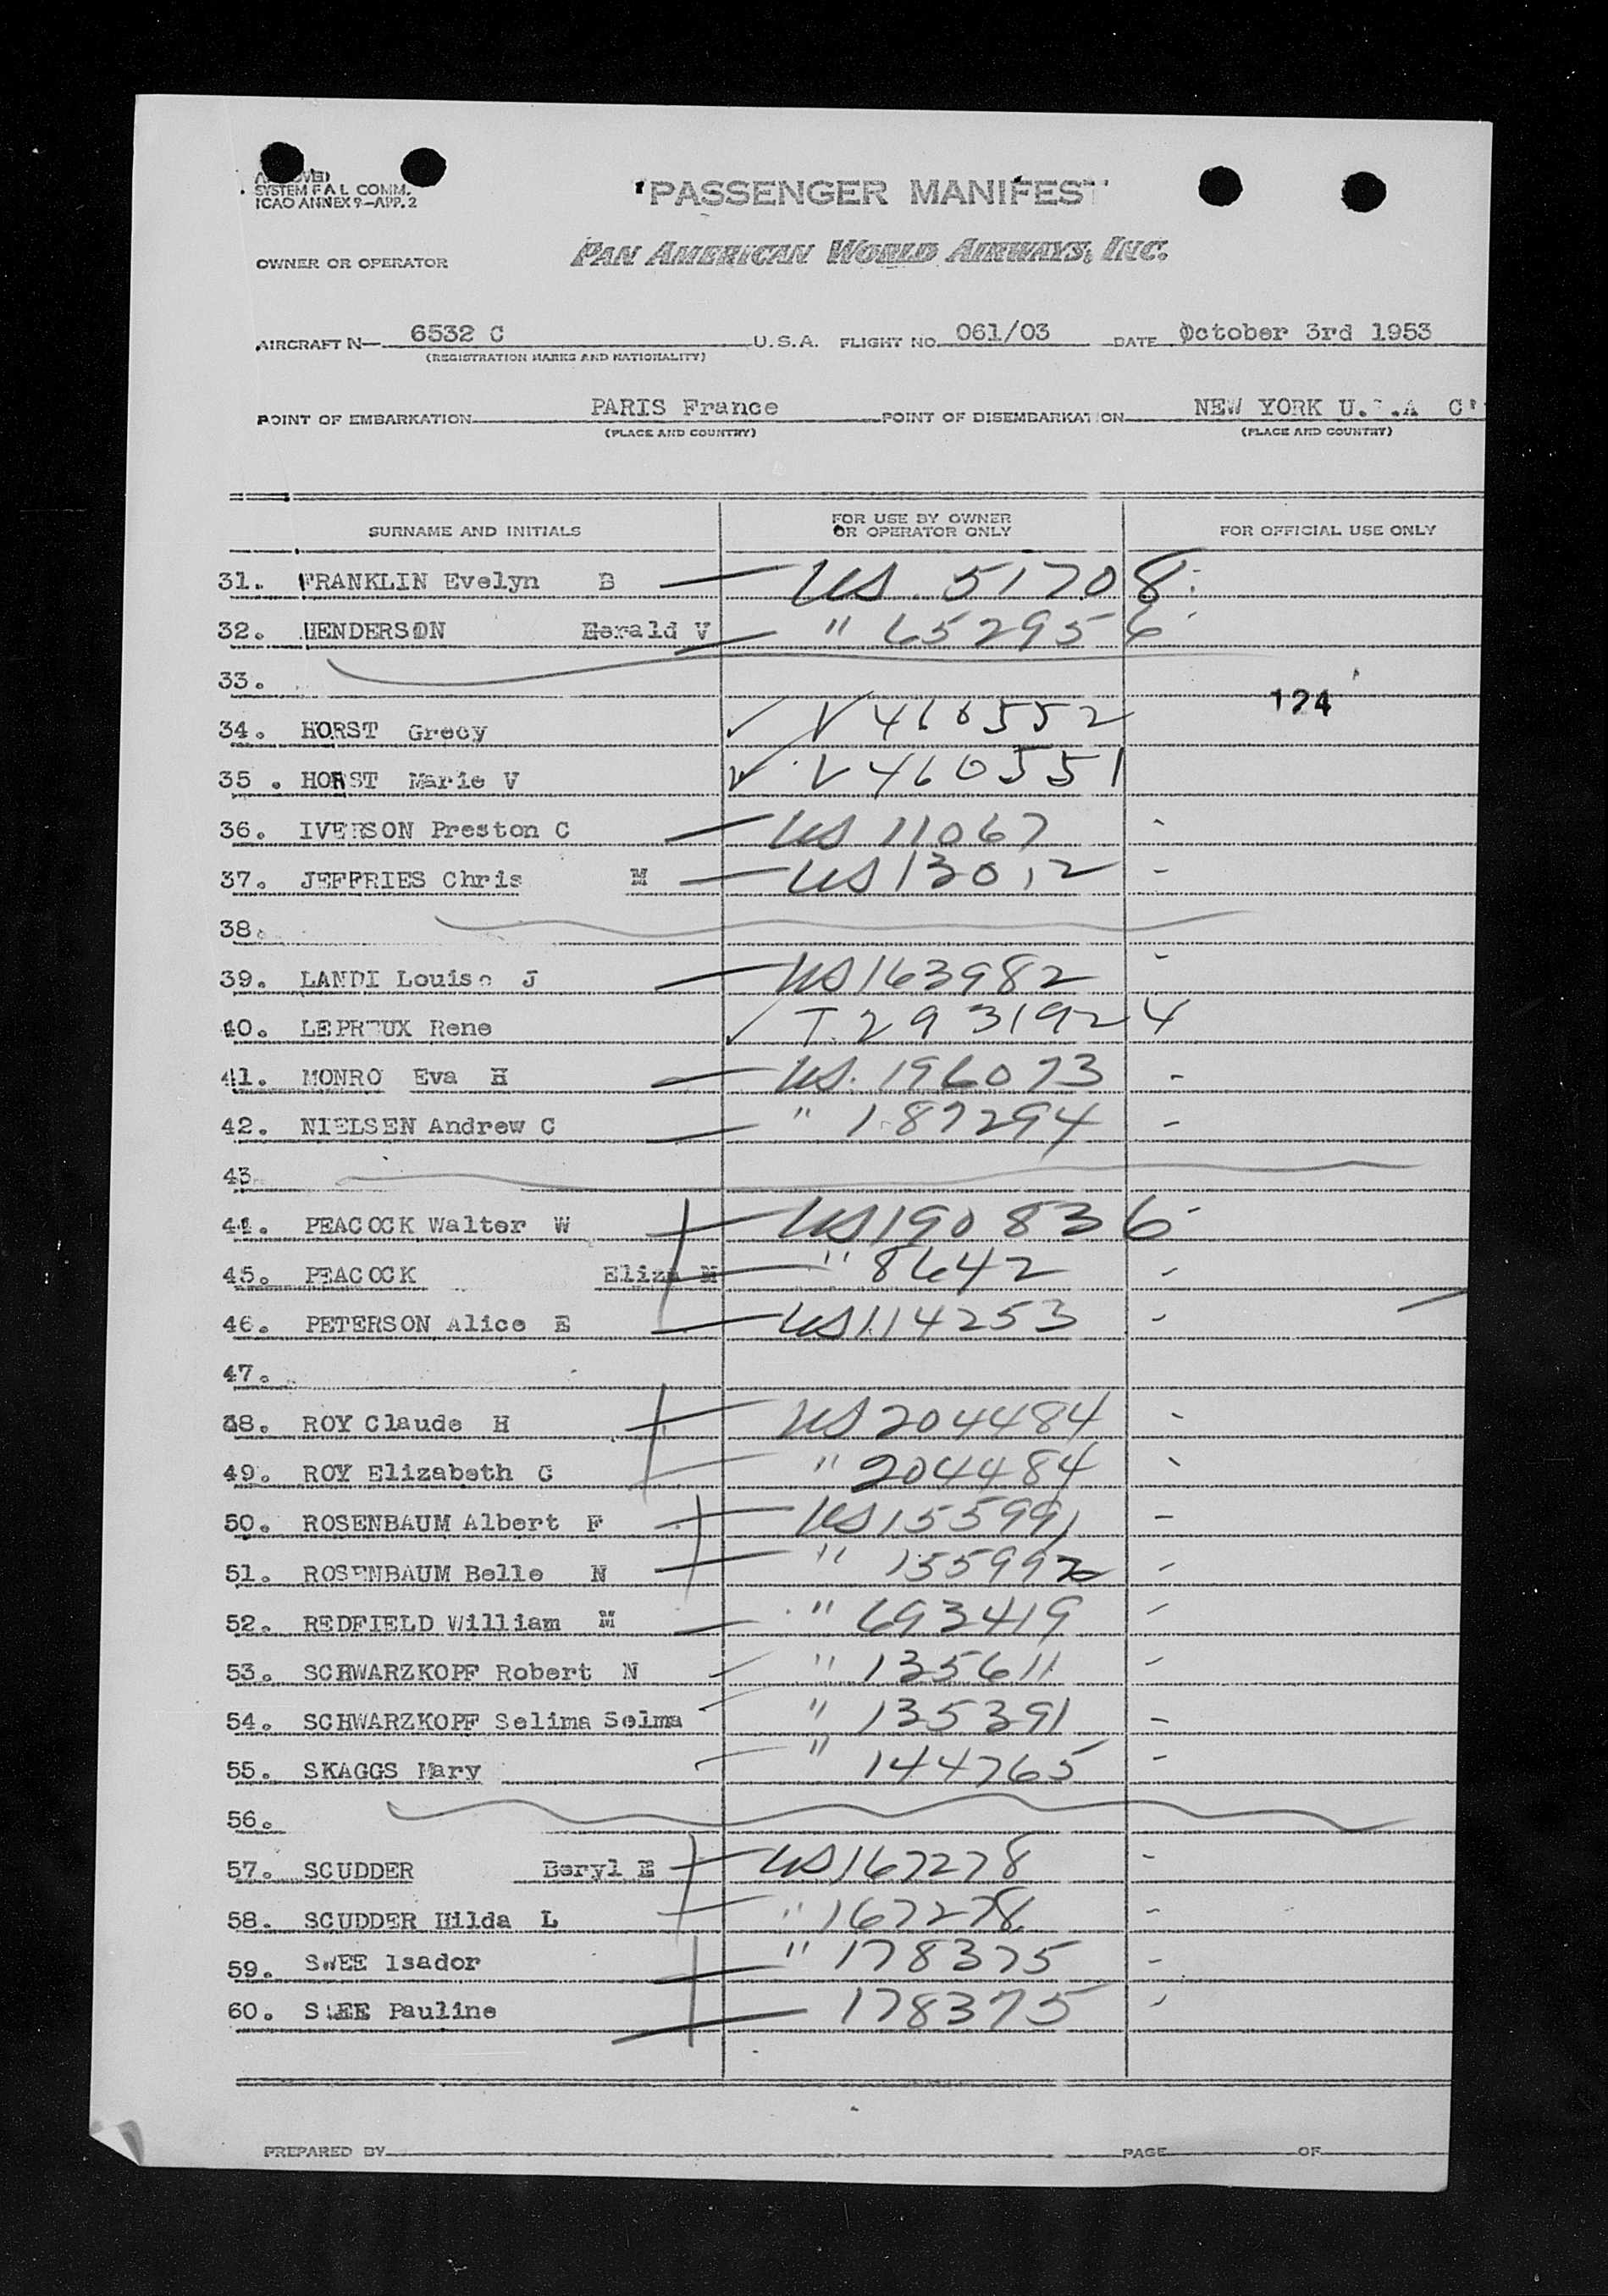 SYSTEM F A L COMM.
ICAO ANNEX 9-APP. 2
PASSENGER MANIFEST
OWNER OR OPERATOR PAN AMERICAN WORLD AIRWAYS, INC.
AIRCRAFT N— 6532 C U.S.A. FLIGHT NO. 061/03 DATE October 3rd 1953
(REGISTRATION MARKS AND NATIONALITY)
POINT OF EMBARKATION PARIS France POINT OF DISEMBARKATION NEW YORK U.S.A
(PLACE AND COUNTRY) (PLACE AND COUNTRY)
SURNAME AND INITIALS FOR USE BY OWNER OR OPERATOR ONLY FOR OFFICIAL USE ONLY
31. FRANKLIN Evelyn B US 51708
32. HENDERSON Herald V " 652956
33.
124
34. HORST Grecy V 460552
35. HORST Marie V V 460551
36. IVERSON Preston C US 11067
37. JEFFRIES Chris M US 13012
38.
39. LANDI Louise J US 163982
40. LEPREUX Rene T. 2931924
41. MONRO Eva H US. 196073
42. NIELSEN Andrew C " 187294
43
44. PEACOCK Walter W US 190836
45. PEACOCK Eliza M " 8642
46. PETERSON Alice E US 114253
47.
48. ROY Claude H US 204484
49. ROY Elizabeth G " 204484
50. ROSENBAUM Albert F US 155991
51. ROSENBAUM Belle N " 155992
52. REDFIELD William M " 693419
53. SCHWARZKOPF Robert N " 135611
54. SCHWARZKOPF Selima Selma " 135391
55. SKAGGS Mary " 144765
56.
57. SCUDDER Beryl E US 167278
58. SCUDDER Hilda L " 167278
59. SWEE Isador " 178375
60. SWEE Pauline 178375
PREPARED BY PAGE OF